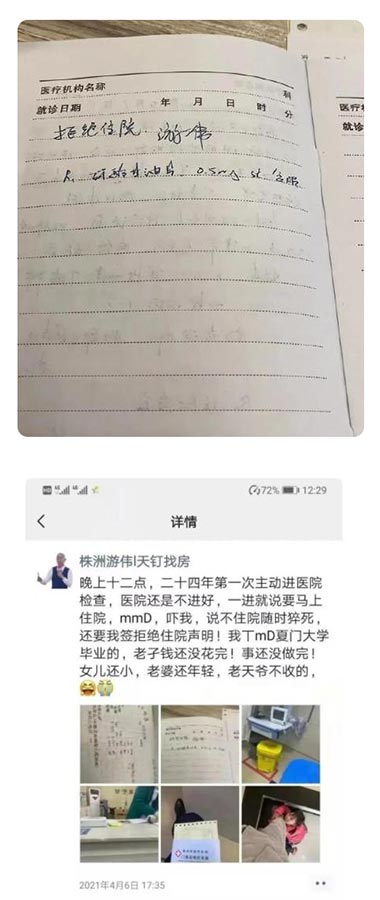 医疗机构名称 科
就诊日期 年 月 日 时 分
拒绝住院 游伟
硝酸甘油片 0.5mg st 含服
医疗
就诊
72% 12:29
详情
株洲游伟I天钉找房
晚上十二点，二十四年第一次主动进医院
检查，医院还是不进好，一进就说要马上
住院，mmD，吓我，说不住院随时猝死，
还要我签拒绝住院声明！我丅mD夏门大学
毕业的，老子钱还没花完！事还没做完！
女儿还小，老婆还年轻，老天爷不收的，
2021年4月6日 17:35